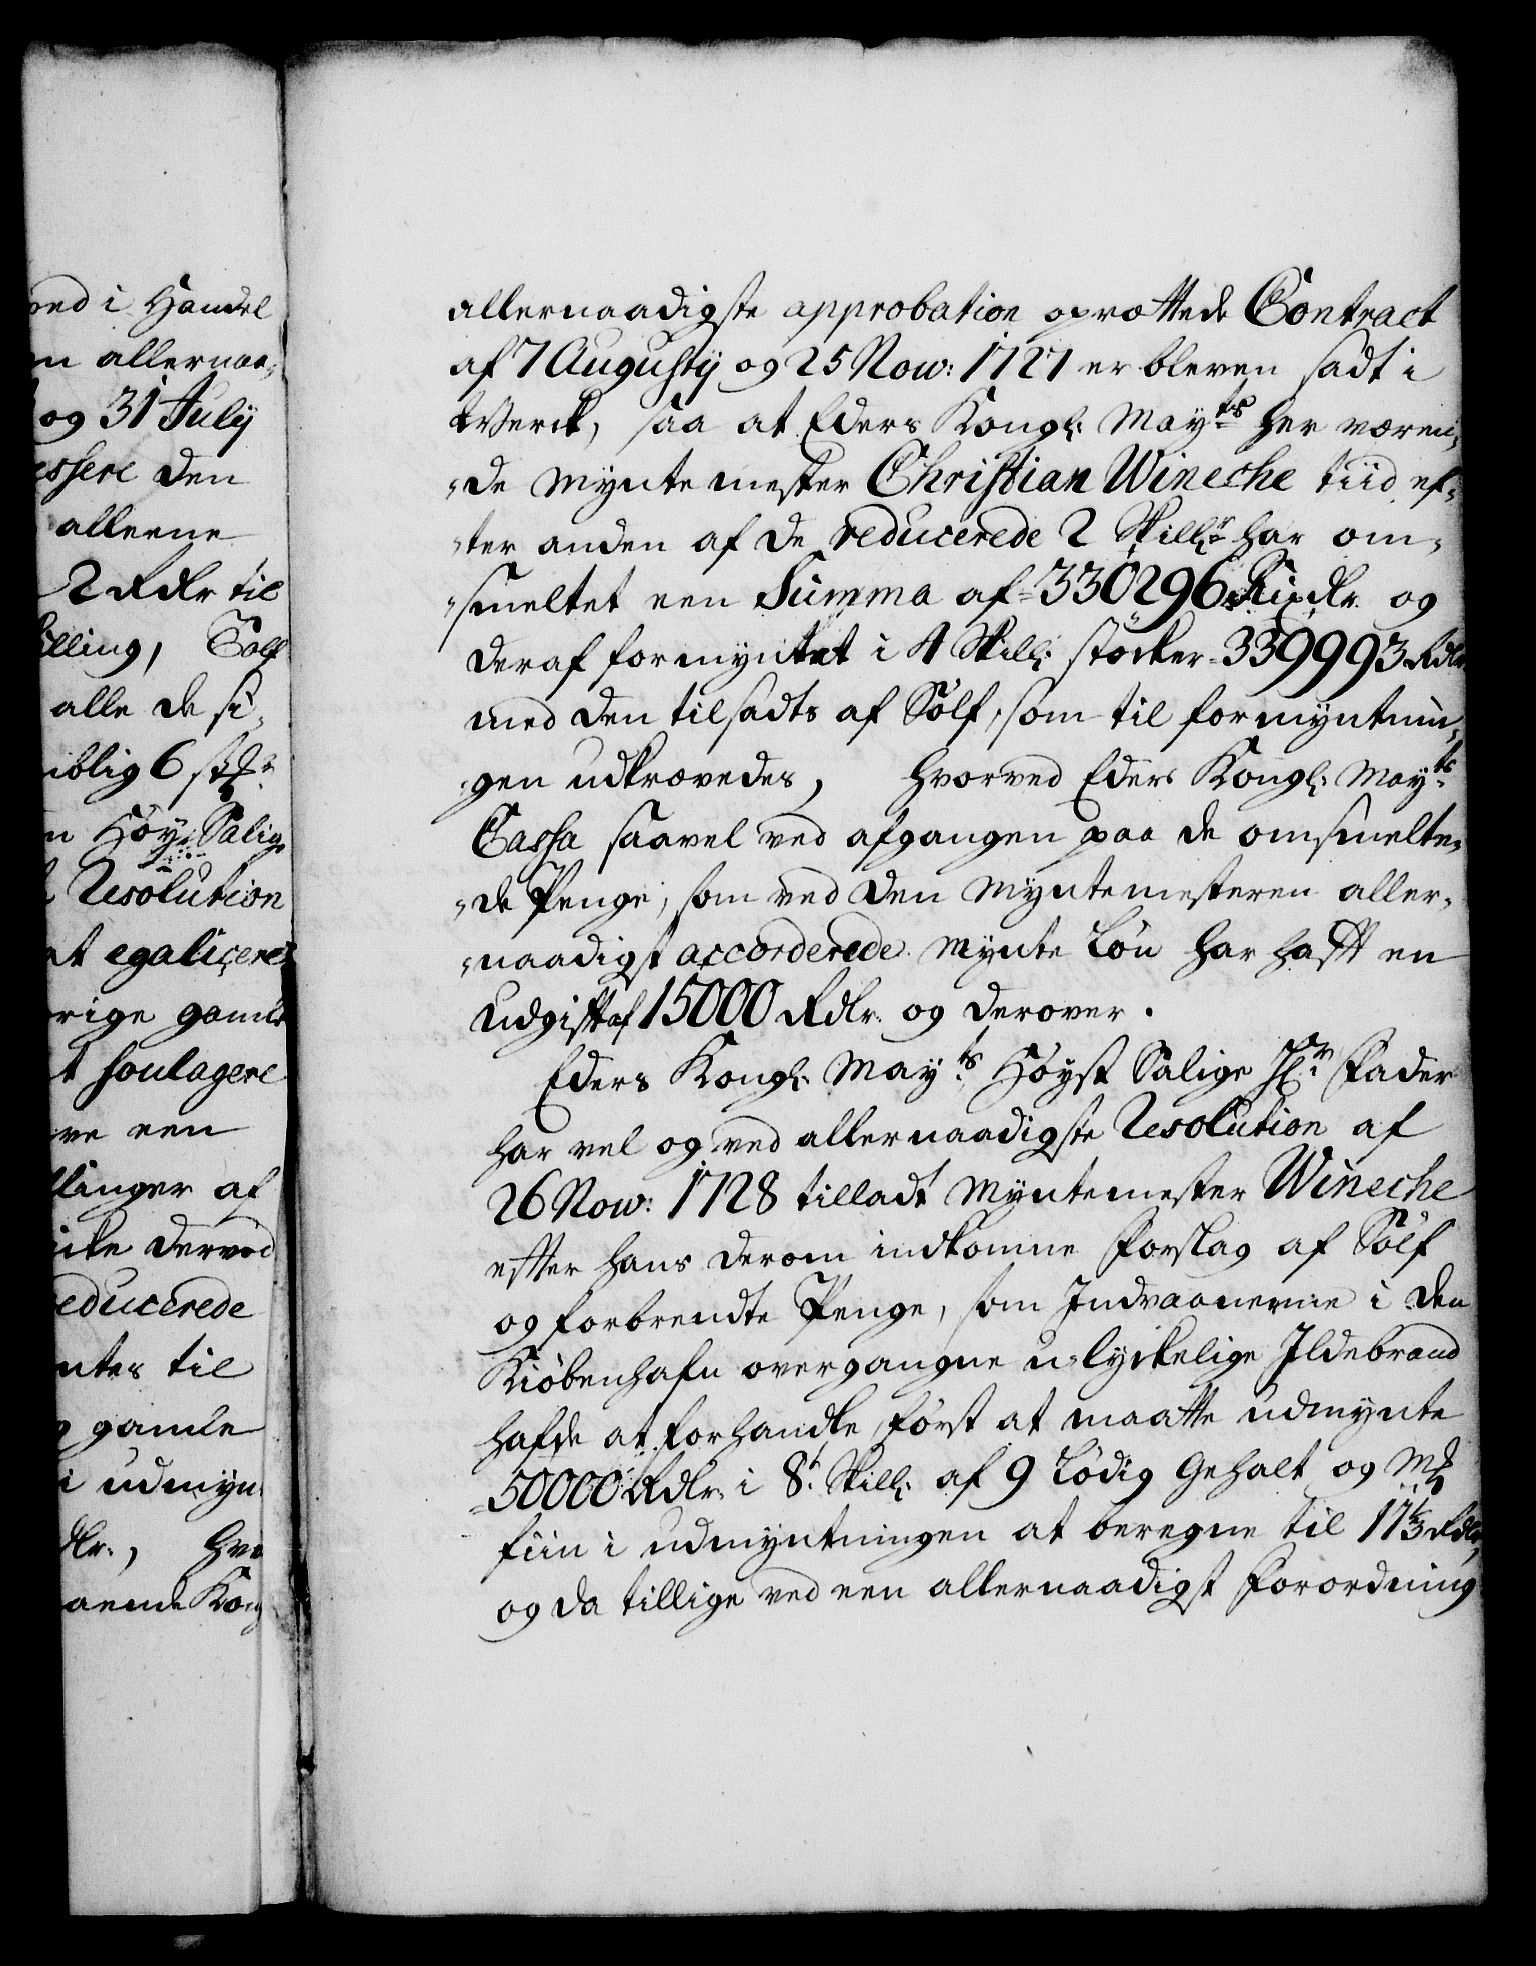 ved i Handel
n allernaa-
og 31 July
essere den
alleene
2 Rdlr til
illing, Tolf
alle de si-
niblig 6 st
n Höy-Salig
Resolution
at egalicere
rige gamle
t soulagere
ve een
llinger af
icke derved
educerede
ntes til
gamle
i udmyn
dlr., hvo
aaende Kong
allernaadigste approbation oprættede Contract
af 7 Augusty og 25 Nov: 1727 er bleven sadt i
Werck, saa at Eders Kongl: Mayts her væren-
-de Myntemester Christian Wineche tiid ef-
-ter anden af de reducerede 2 Skillr har om-
-smeltet een Summa af 330296 Rixdlr. og
deraf formyntet i 4 Skill: störker 339993 Rdlr
med den tilsadts af Sölf, som til formyntnin-
-gen udkrævedes, hvorved Eders Kongl: Mayts
Cassa saavel ved afgangen paa de omsmelte-
-de Penge, som ved den Myntemesteren aller-
-naadigst accorderede Mynte Lön har hafft en
Udgift af 15000 Rdlr. og derover.
Eders Kongl: Mayts Höyst Salige Hr Fader
har vel og ved allernaadigste Resolution af
26 Nov: 1728 tilladt Myntemester Wineche
efter hans derom indkomne Forslag af Sölf
og forbrendte Penge, som Indvaanerne i den
Kiöbenhafn overgangne u-lyckelige Ildebrand
hafde at forhandle, först at maatte udmynte
50000 Rdlr. i 8t Skill: af 9 Lödig Gehalt og M
fiin i udmyntningen at beregne til 11 1/3 Rdlr,
og da tillige ved een allernaadigst Forordning